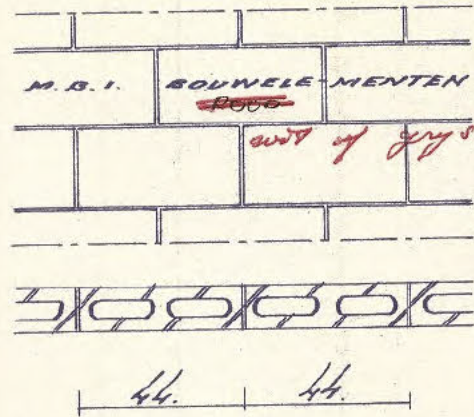 M.B.I. BOUWELE-MENTEN
ROOD
wit of grijs
44. 44.